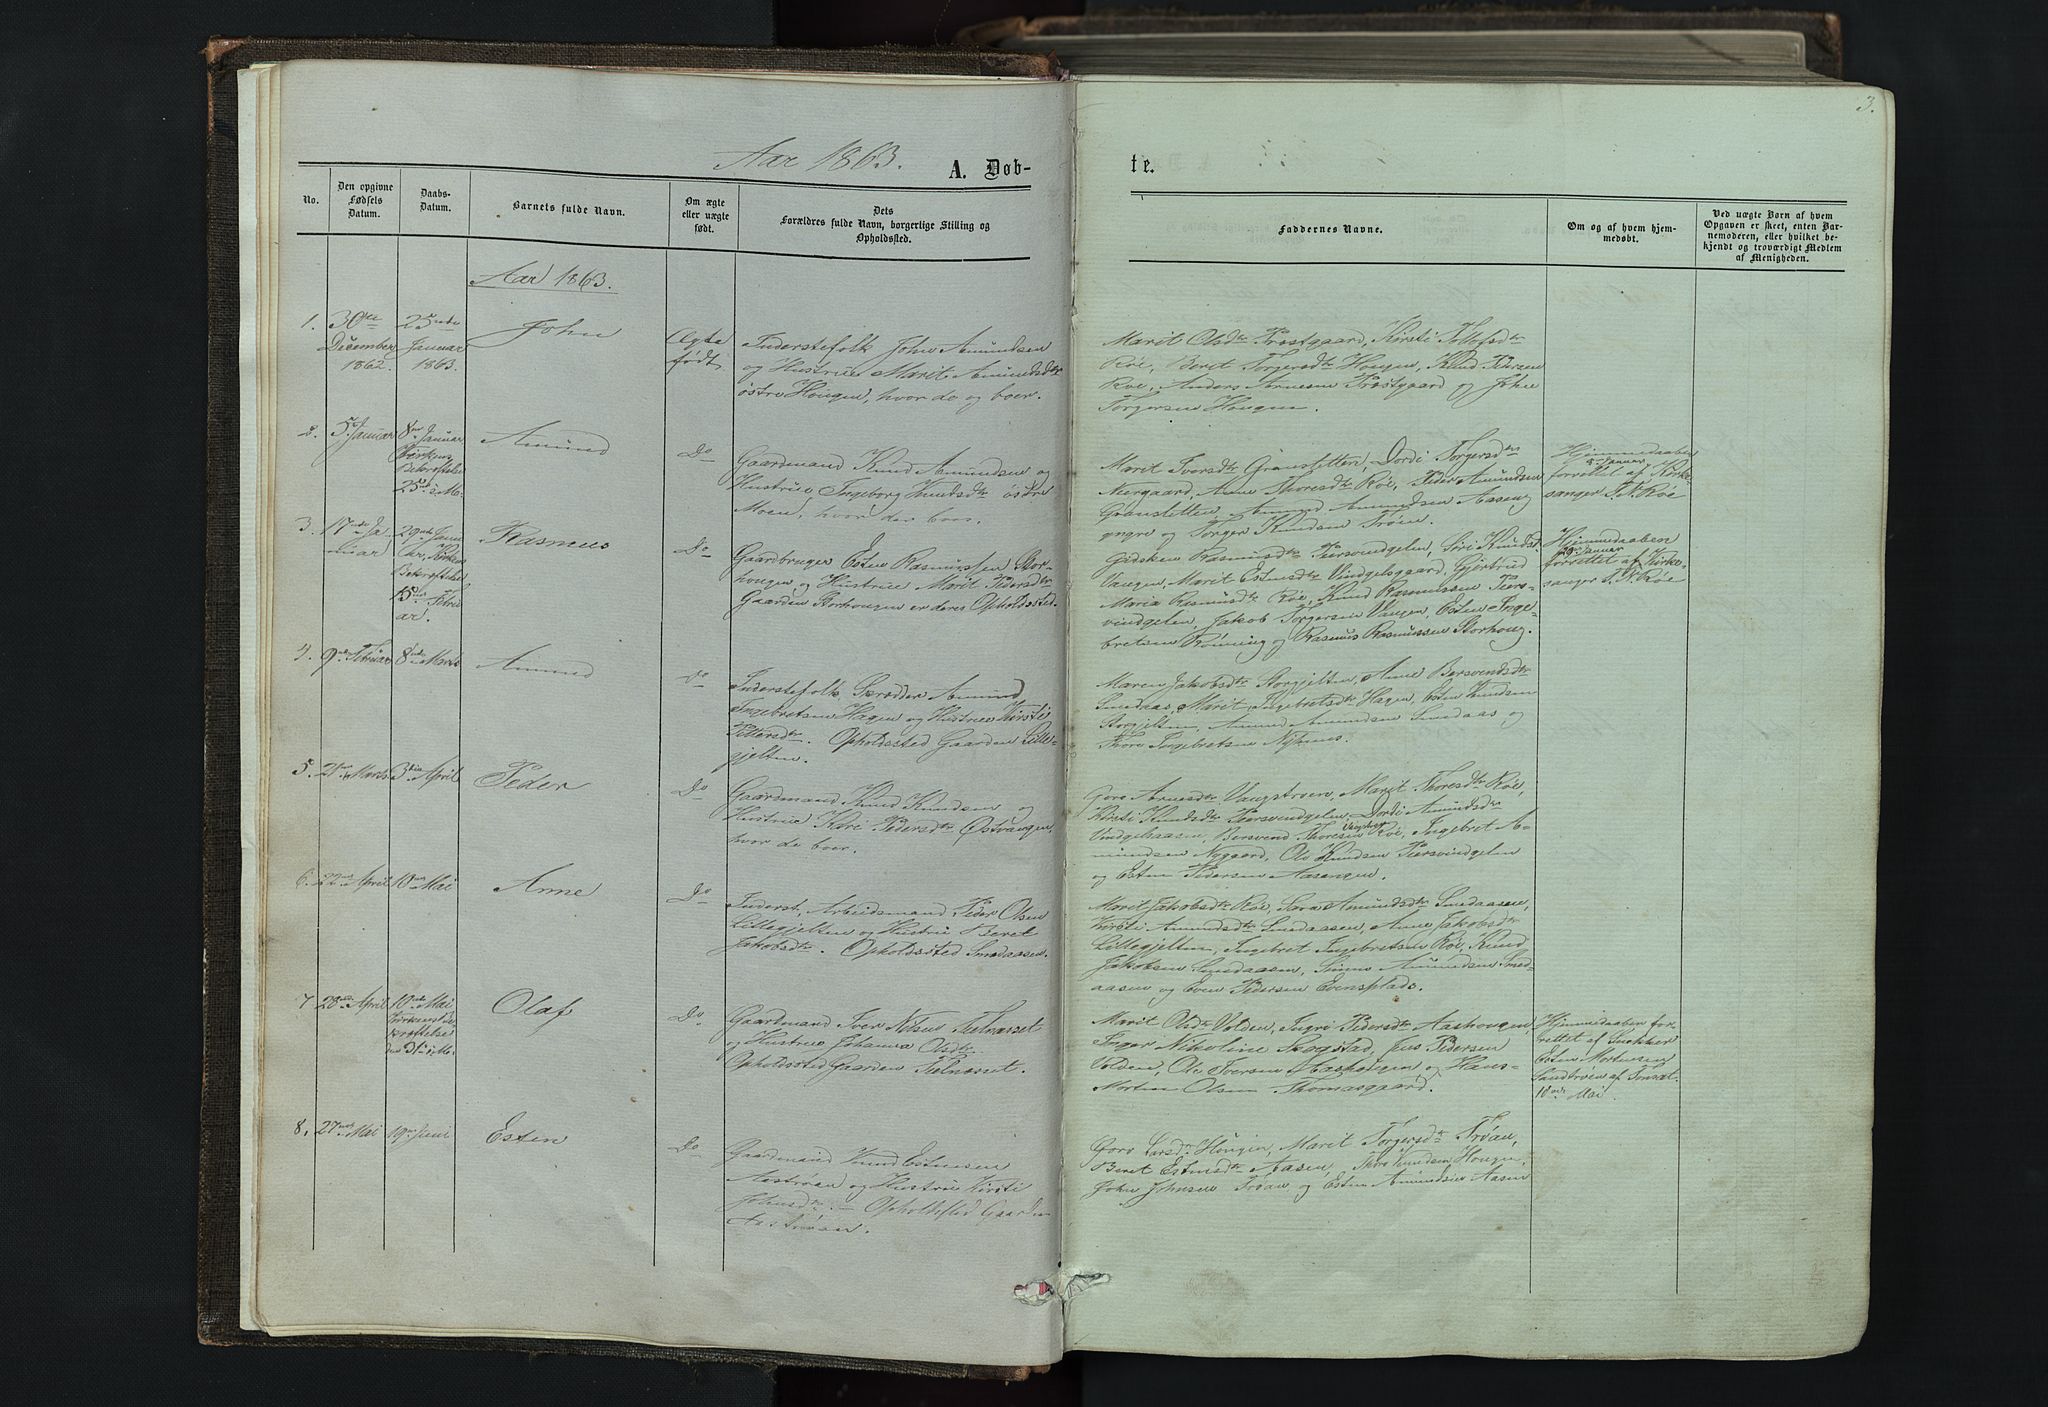 3.
Aar 1863.
A. Døb-
te.
No.
Den opgivne
Fødsels
Datum.
Daabs-
Datum.
Barnets fulde Navn.
Om ægte
eller uægte
født.
Dets
Forældres fulde Navn, borgerlige Stilling og
Opholdssted.
Faddernes Navne.
Om og af hvem hjem-
medøbt.
Ved uægte Børn af hvem
Opgaven er skeet, enten Bar-
nemoderen, eller hvilket be-
kjendt og troværdigt Medlem
af Menigheden.
Aar 1863.
1.
30te
December
1862.
25de
Januar
1863.
John
Ægte
født
Inderstefolk John Amundsen
og Hustrue Marit Amundsdtr
østre Hougen, hvor de og boer.
Marit Olsdtr Trøstgaard, Kirsti Tollofsdtr
Røe, Beret Torgersdtr Hougen, Knud Pedersen
Røe, Anders Arnesen Trøstgaard og John
Torgersen Hougen.
2.
5 Januar
8 Januar
Kirkens
Bekræftelse
25de s. M.
Amund
Do
Gaardmand Knud Amundsen og
Hustrue Ingeborg Knudsdtr østre
Moen, hvor der boer.
Marit Iversdtr Granstetten, Dordi Torgersdtr
Neergaard, Anne Thoresdtr Røe, Peder Amundsen
Granstetten, Amund Amundsen Aaseng
yngre og Torger Knudsen Trøen.
Hjemmedaaben
8 Januar
forrettet af Kirke-
sanger T. N. Røe
3.
17de Ja
nuar
29de Janu
ar, Kirkens
Bekræftelse
15de Febru
ar.
Rasmus
Do
Gaardbruger Esten Rasmussen Stor-
hougen og Hustrue Marit Pedersdtr
Gaarden Storhougen er deres Opholdssted.
Gidsken Rasmusdtr Teersvindgelen, Siri Knudsd.
Vangen, Marit Estensdtr Vindgelsgaard, Gjertrud
Maria Rasmusdtr Røe, Knud Rasmussen Teers-
vindgelen, Jakob Torgersen Vangen, Esten Inge-
bretsen Rønning og Rasmus Rasmussen Storhoug.
Hjemmedaaben
29 Januar
forrettet af Kirke-
sanger T. N. Røe
4.
9de Februar
8de Marts
Amund
Do
Inderstefolk Skrædder Amund
Ingebretsen Hagen og Hustrue Kirsti
Pettersdtr. Opholdssted Gaarden Lille-
gjelten.
Maren Jakobsdtr Storgjelten, Anne Bersvendsdtr
Smedaas, Marit Ingebretsdtr Hagen, Esten Knudsen
Storgjelten, Amund Amundsen Smedaas og
Thore Ingebretsen Nytrøes.
5.
21de Marts
3die April
Peder
Do
Gaardmand Knud Knudsen og
Hustrue Kari Pedersdtr Østvangen,
hvor de boer.
Goro Arnesdtr Vangstrøen, Marit Thoresdtr Røe,
Kirsti Knudsdtr Teersvindgelen, Dordi Amundsdtr
Vindgelsaasen, Bersvend Thoresen Røe, Ingebret A-
mundsen Nygaard, Ole Knudsen Teersvindgelen
og Esten Pedersen Aasengen.
6.
22de April
10de Mai
Anne
Do
Inderst, Arbeidsmand Peder Olsen
Lillegjelten og Hustrue Beret
Jakobsdtr. Opholdssted Smedaasen.
Marit Jakobsdtr Røe, Sara Amundsdtr Smedaasen,
Kirsti Amundsdtr Smedaasen, Anne Jakobsdtr
Lillegjelten, Ingebret Ingebretsen Røe, Knud
Jakobsen Smedaasen, Simen Amundsen Smed-
aasen og Even Pedersen Evensplads.
7
28de April
10de Mai
Kirkens Be-
kræftelse
den 31te s. M.
Olaf
Do
Gaardmand Iver Nilsen Telnæsset
og Hustrue Johanna Olsdtr.
Opholdssted Gaarden Telnæsset.
Marit Olsdtr Volden, Ingri Pedersdtr Aashougen,
Inger Nikoline Skogstad, Jens Pedersen
Volden, Ole Iversen Aashougen og Hans-
Morten Olsen Thomasgaard.
Hjemmedaaben for-
rettet af Snekker
Esten Mortensen
Sandtrøen af Tønsæt
10de Mai.
8.
27de Mai
19de Juni
Esten
Do
Gaardmand Knud Estensen
Aastrøan og Hustrue Kirsti
Johnsdtr. — Opholdssted Gaarden
Aastrøan.
Goro Larsdtr Hougen, Marit Torgersdtr Trøan,
Beret Estensdtr Aasen, Thore Knudsen Hougen,
John Johnsen Trøan og Esten Amundsen Aasen